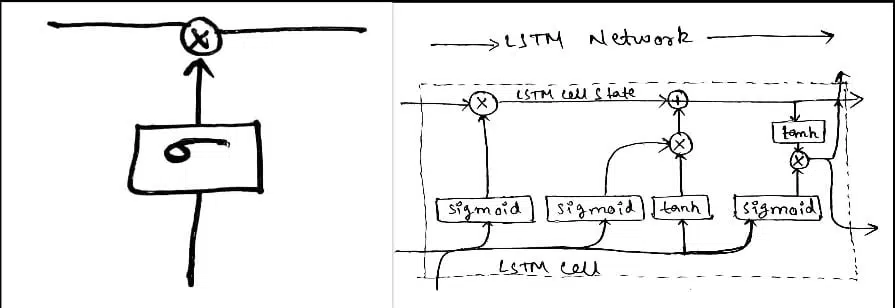 ×
σ
LSTM Network
× LSTM Cell State +
tanh
×
×
sigmoid sigmoid tanh sigmoid
LSTM Cell